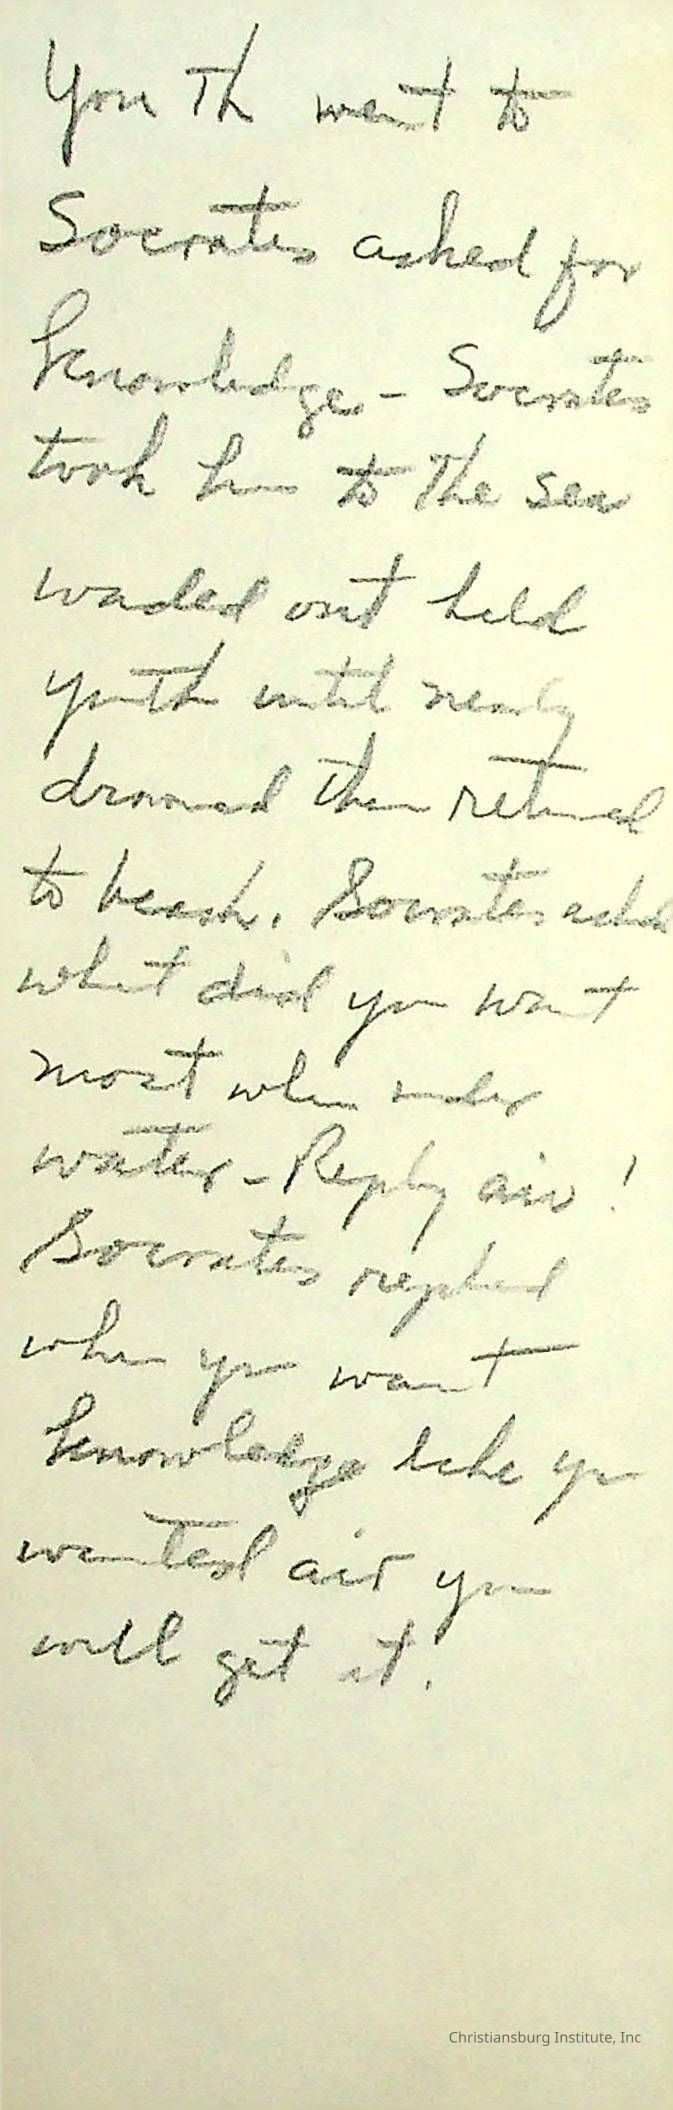 Youth went to
Socrates asked for
knowledge - Socrates
took him to the sea
waded out held
youth until nearly
drowned then returned
to beach. Socrates asked
what did you want
most when under
water - Reply air!
Socrates replied
when you want
knowledge like you
wanted air you
will get it.
Christiansburg Institute, Inc